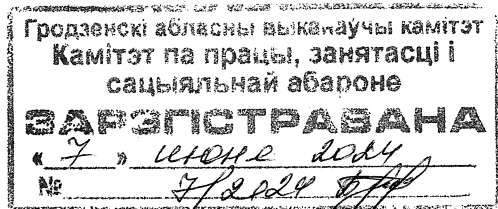 Гродзенскі абласны выканаўчы камітэт
Камітэт па працы, занятасці і
сацыяльнай абароне
ЗАРЭГІСТРАВАНА
« 7 » июня 2024
№ 7/2024